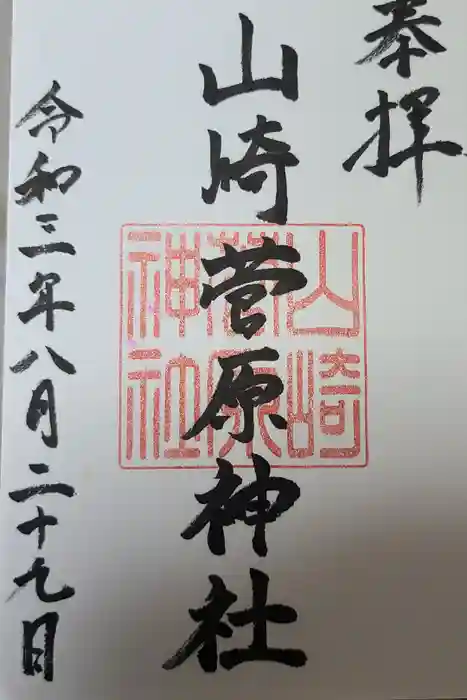 奉拝
山崎菅原神社
山崎
菅原
神社
令和三年八月二十九日